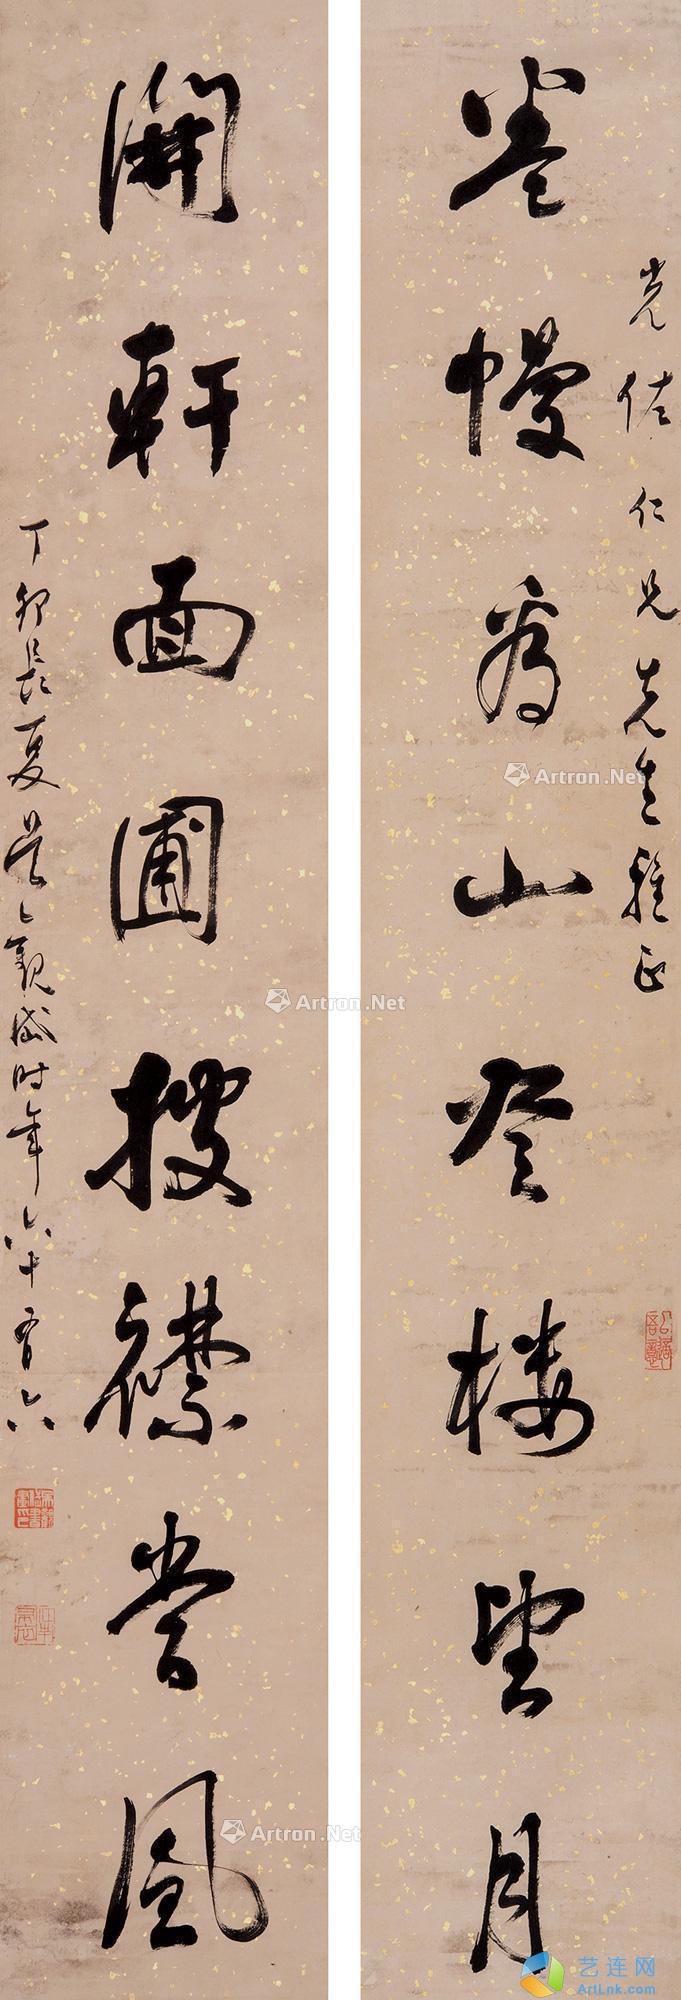 光佐仁兄先生雅正
卷幔看山登楼望月
開軒面圃披襟當風
丁卯長夏 觀岱時年六十有六
Artron.Net
Artron.Net
Artron.Net
艺连网
ArtLnk.com